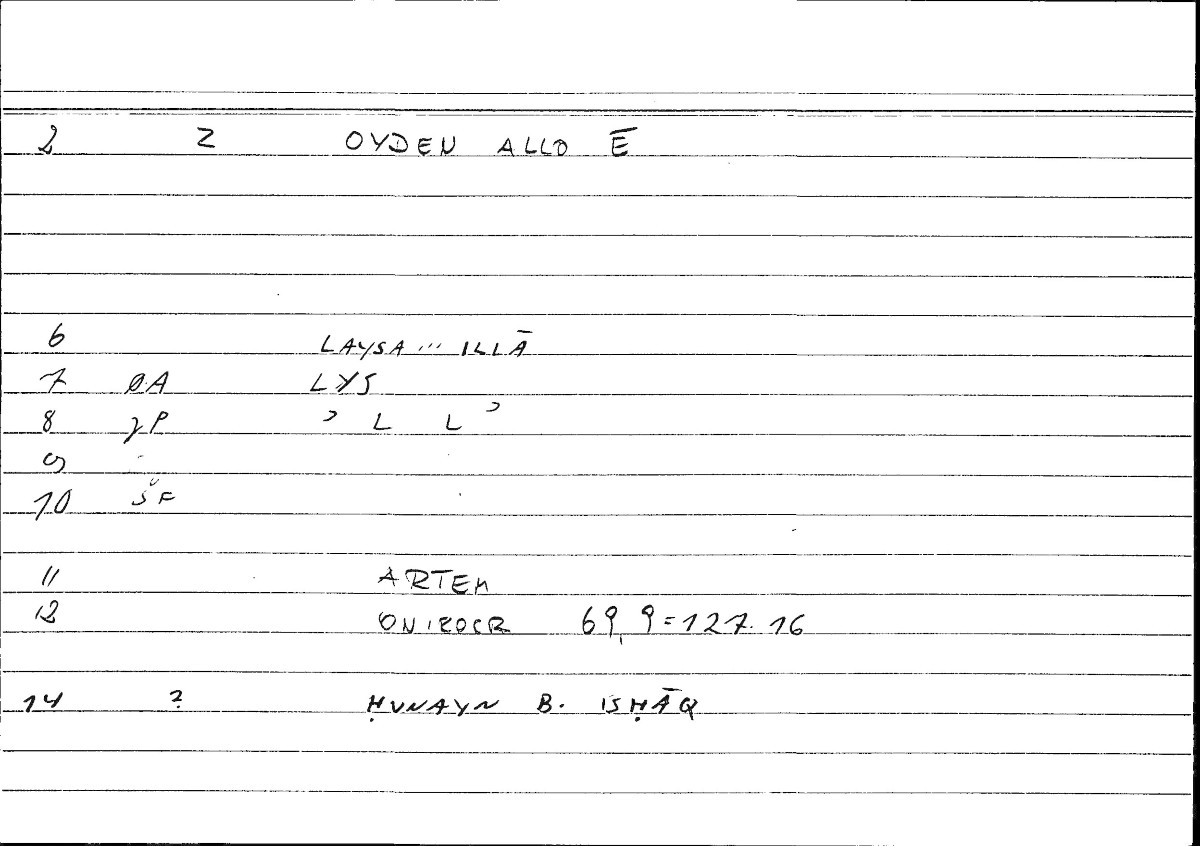 2 Z OYDEN ALLO Ē
6 LAYSA ... ILLĀ
7 ØA LYS
8 γP ʾ L L ʾ
9
10 ŠF
11 ARTEM
12 ONIROCR 69,9=127.16
14 ? ḤUNAYN B. ISḤĀQ